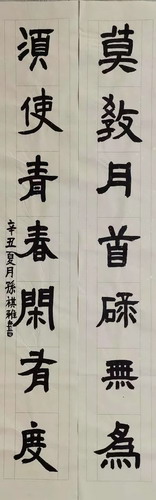 莫教月首碌無為
須使青春閑有度
辛丑夏月孫祺雅書